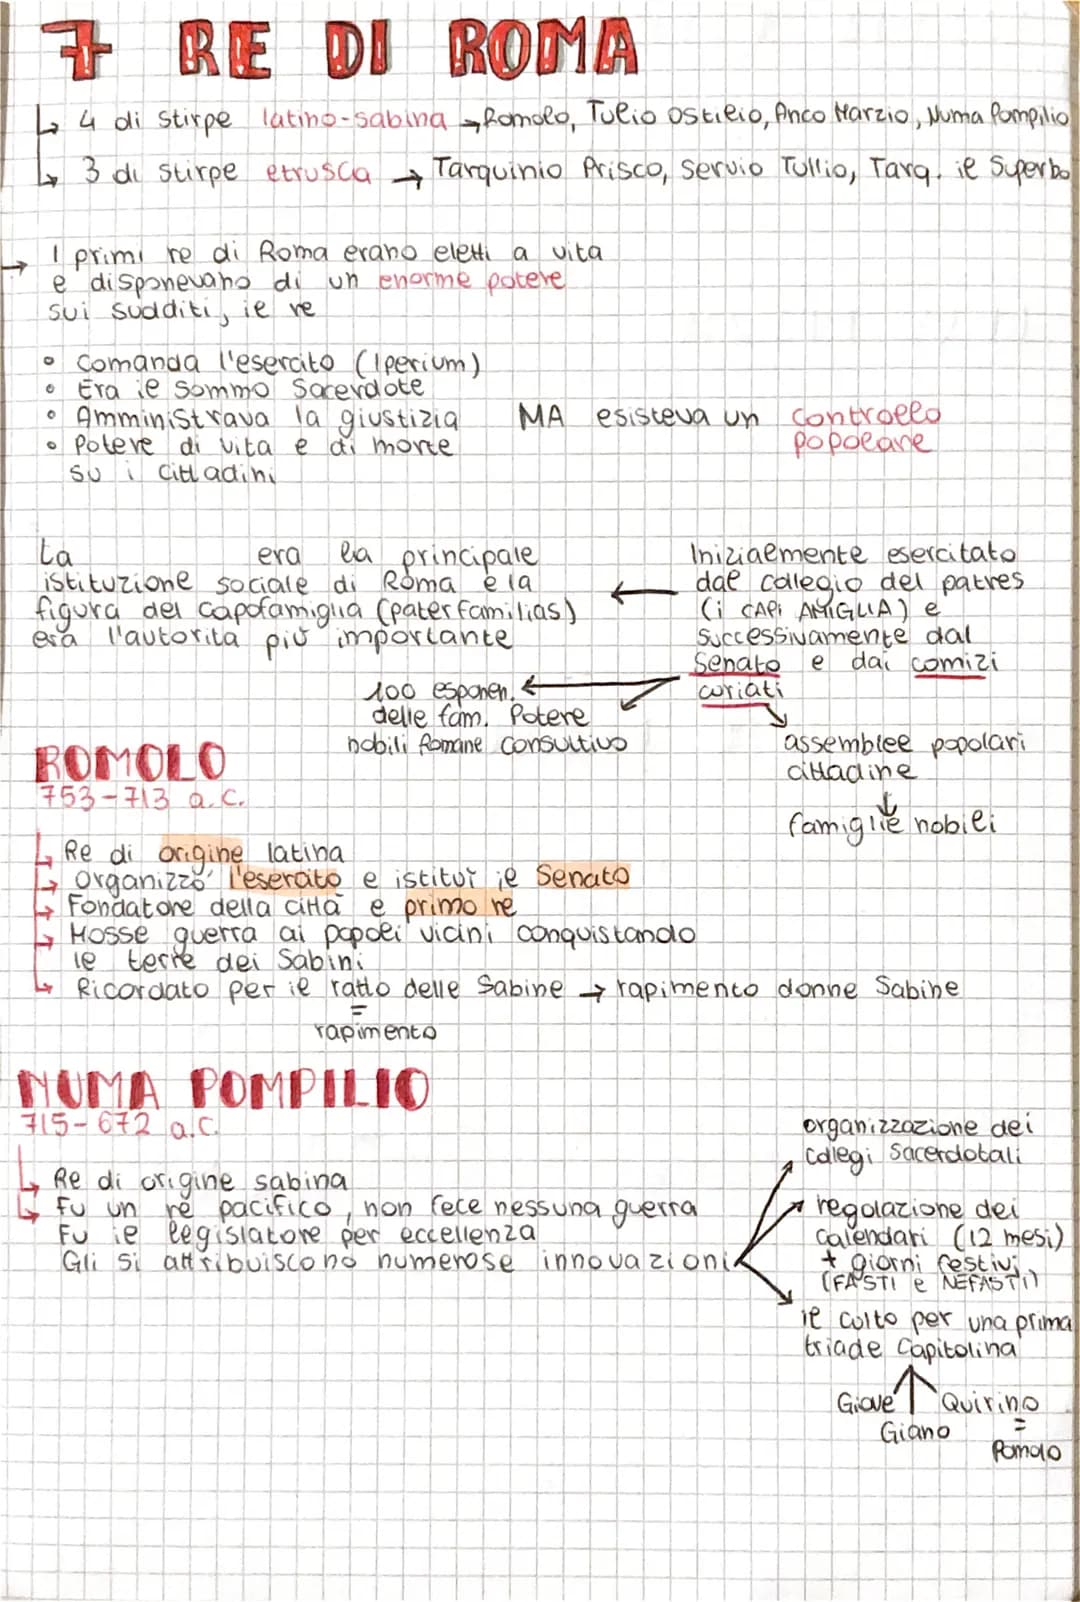 7 RE DI ROMA
↳ 4 di stirpe latino-sabina → Romolo, Tulio Ostilio, Anco Marzio, Numa Pompilio
↳ 3 di stirpe etrusca → Tarquinio Prisco, Servio Tullio, Tarq. il Superbo
→ I primi re di Roma erano eletti a vita
e disponevano di un enorme potere
sui sudditi, il re
• Comanda l'esercito (Iperium)
• Era il Sommo Sacerdote
• Amministrava la giustizia MA esisteva un controllo
• Potere di vita e di morte popolare
su i cittadini
La era la principale
istituzione sociale di Roma e la
figura del capofamiglia (paterfamilias)
era l'autorita più importante
Inizialmente esercitato
dal collegio del patres
(i CAPI AMIGLIA) e
successivamente dal
Senato e dai comizi
curiati
100 esponen.
delle fam. Potere
nobili Romane consultivo
assemblee popolari
cittadine
↓
famiglie nobili
ROMOLO
753-713 a.C.
↳ Re di origine latina
↳ Organizzò l'esercito e istituì il Senato
↳ Fondatore della città e primo re
↳ Mosse guerra ai popoli vicini conquistando
le terre dei Sabini
↳ Ricordato per il ratto delle Sabine → rapimento donne Sabine
=
rapimento
NUMA POMPILIO
715-672 a.C.
↳ Re di origine sabina
↳ Fu un re pacifico, non fece nessuna guerra
Fu il legislatore per eccellenza
Gli si attribuiscono numerose innovazioni
organizzazione dei
collegi Sacerdotali
regolazione dei
calendari (12 mesi)
+ giorni festivi
(FASTI e NEFASTI)
il culto per una prima
triade Capitolina
Giove ↑ Quirino
Giano =
Romolo